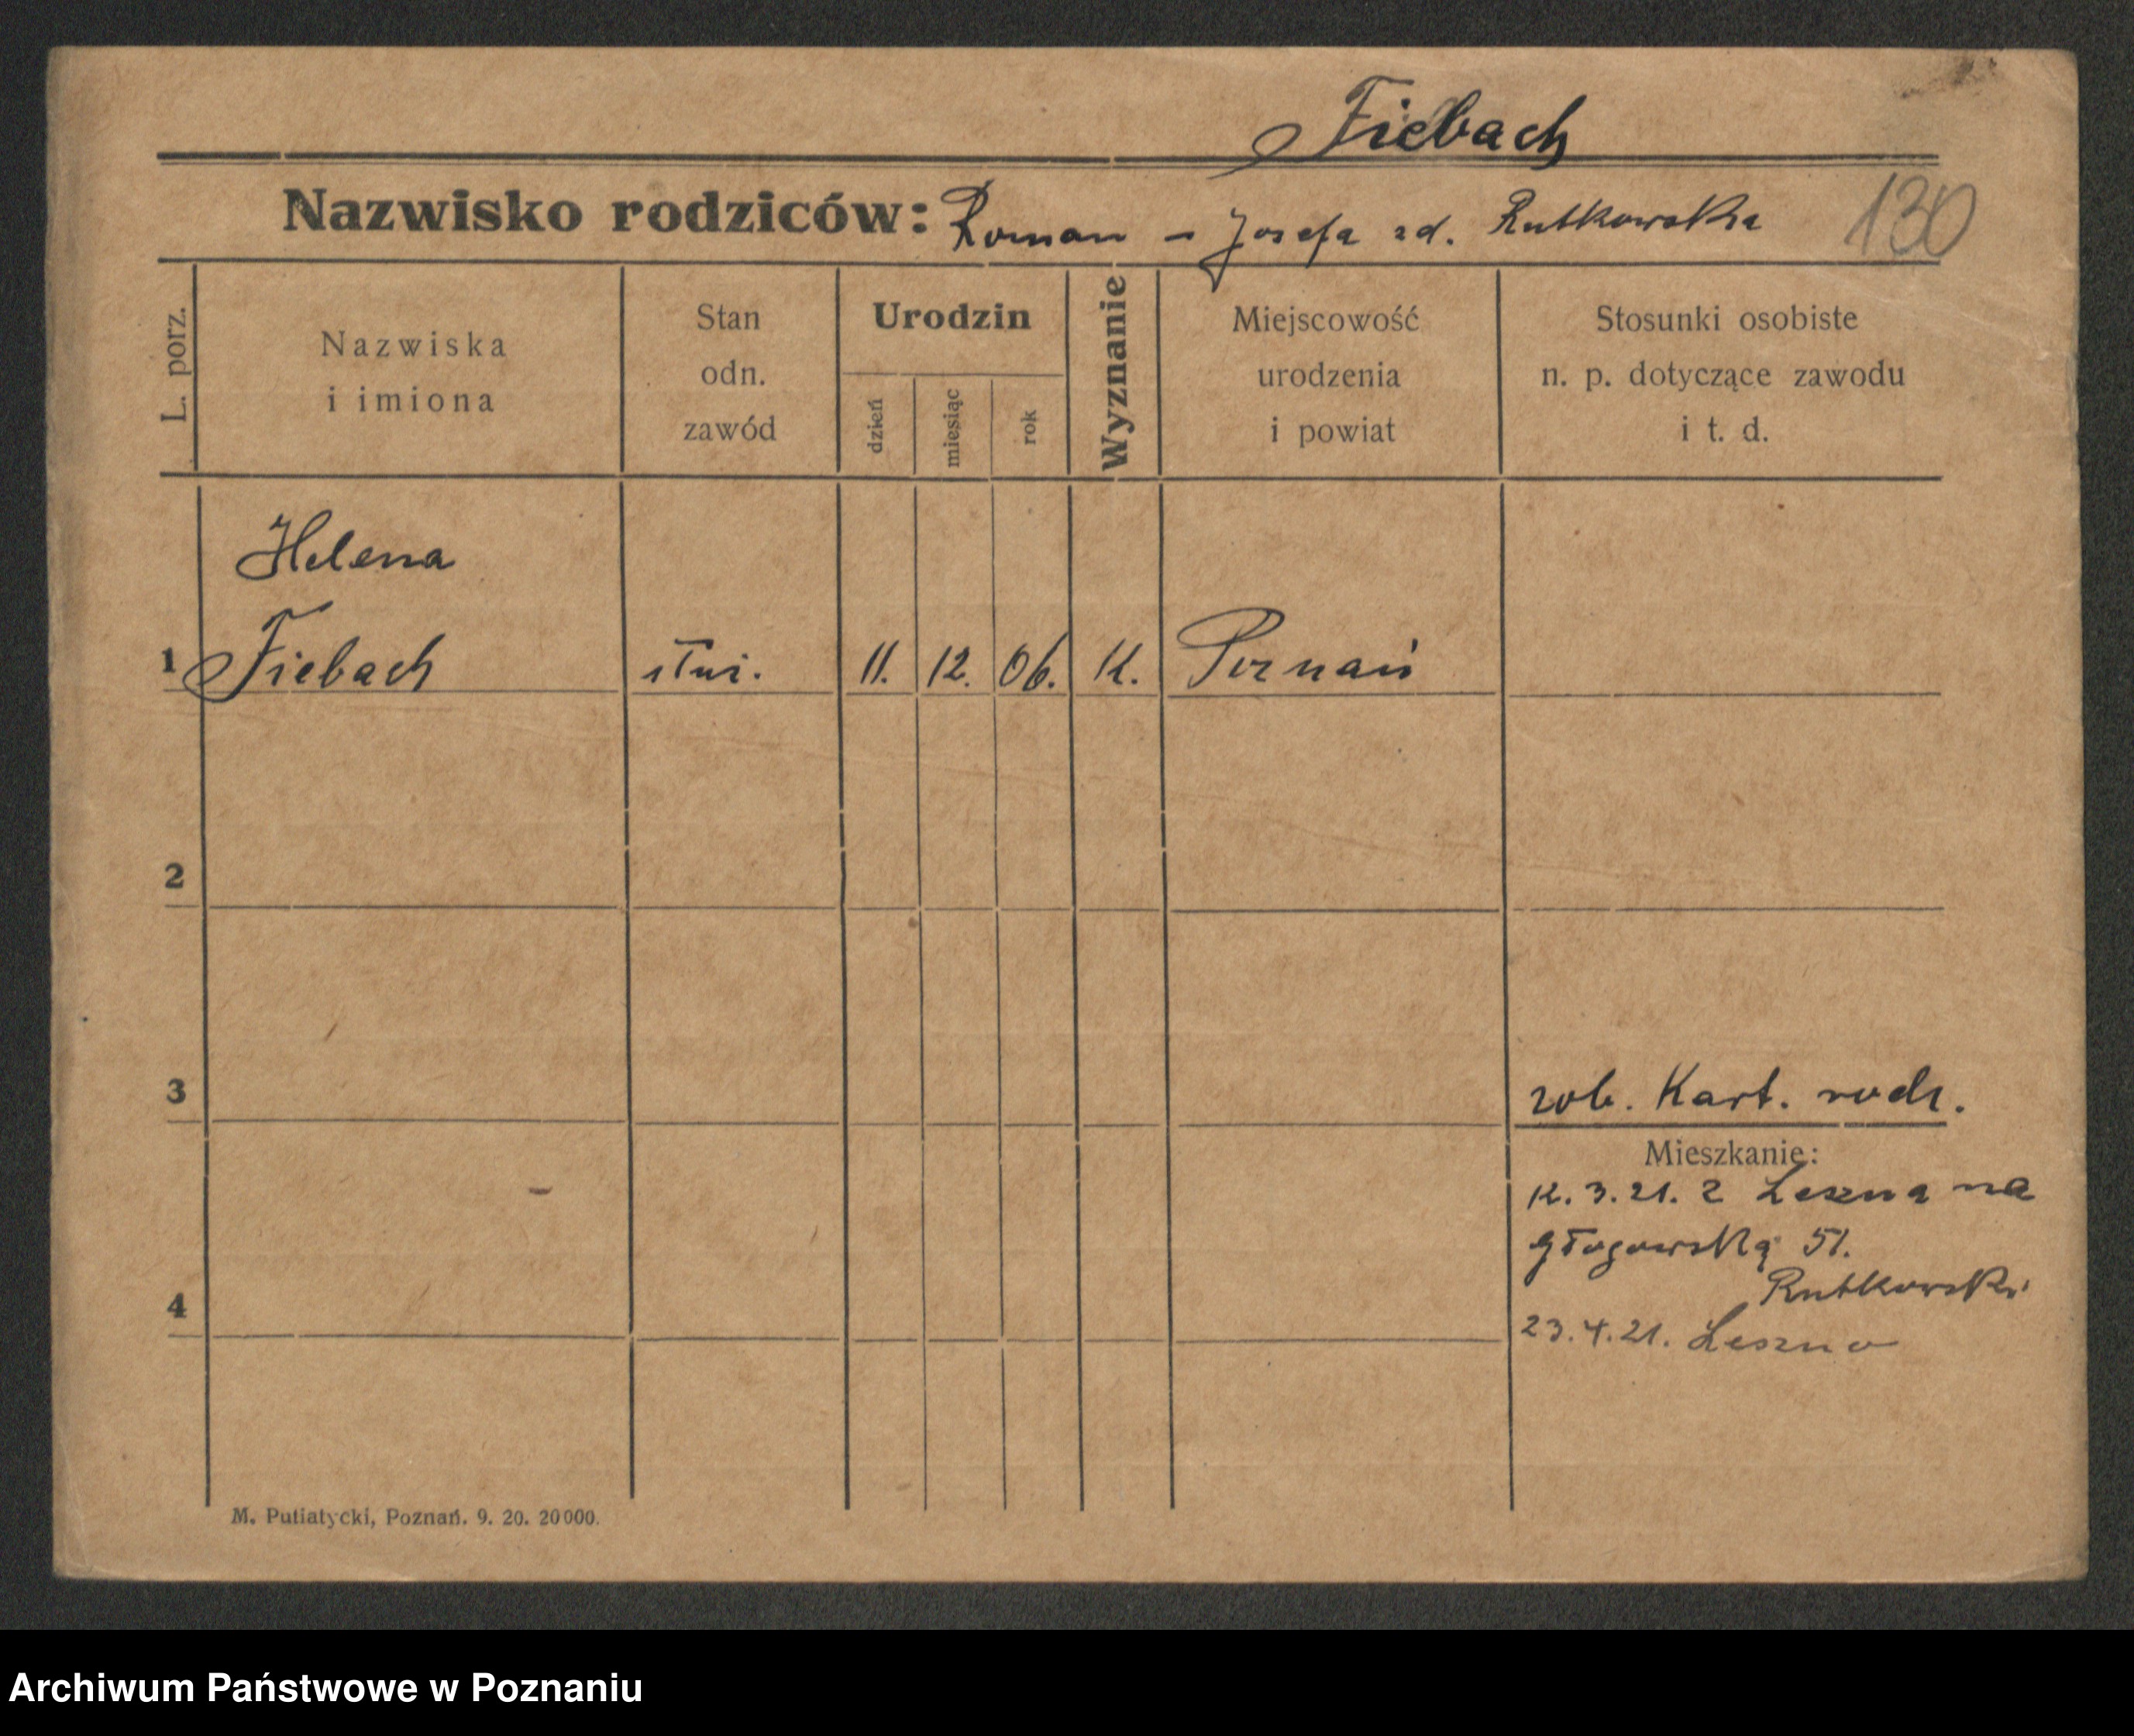 Fiebach
Nazwisko rodziców: Roman - Josefa zd. Rutkowska 130
L. porz.
Nazwiska
i imiona
Stan
odn.
zawód
Urodzin
dzień
miesiąc
rok
Wyznanie
Miejscowość
urodzenia
i powiat
Stosunki osobiste
n. p. dotyczące zawodu
i t. d.
Helena
1 Fiebach służ. 11. 12. 06. K. Poznań
2
3
zob. Kart. rodz.
Mieszkanie:
12.3.21. z Leszna na
Głogowską 51.
Rutkowski
4
23.4.21. Leszno
M. Putiatycki, Poznań. 9. 20. 20000.
Archiwum Państwowe w Poznaniu